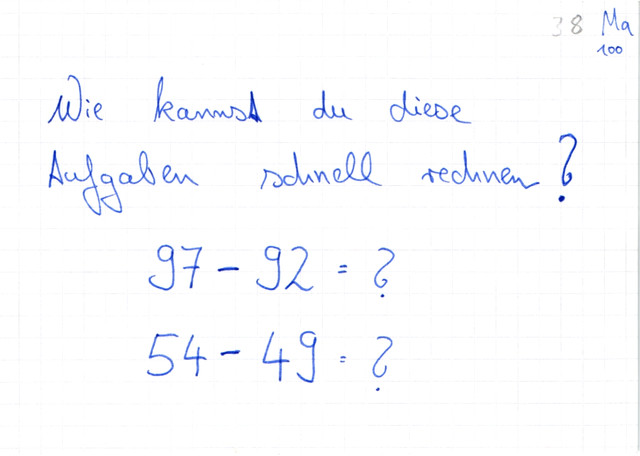 38 Ma
100
Wie kannst du diese
Aufgaben schnell rechnen?
97 - 92 = ?
54 - 49 = ?